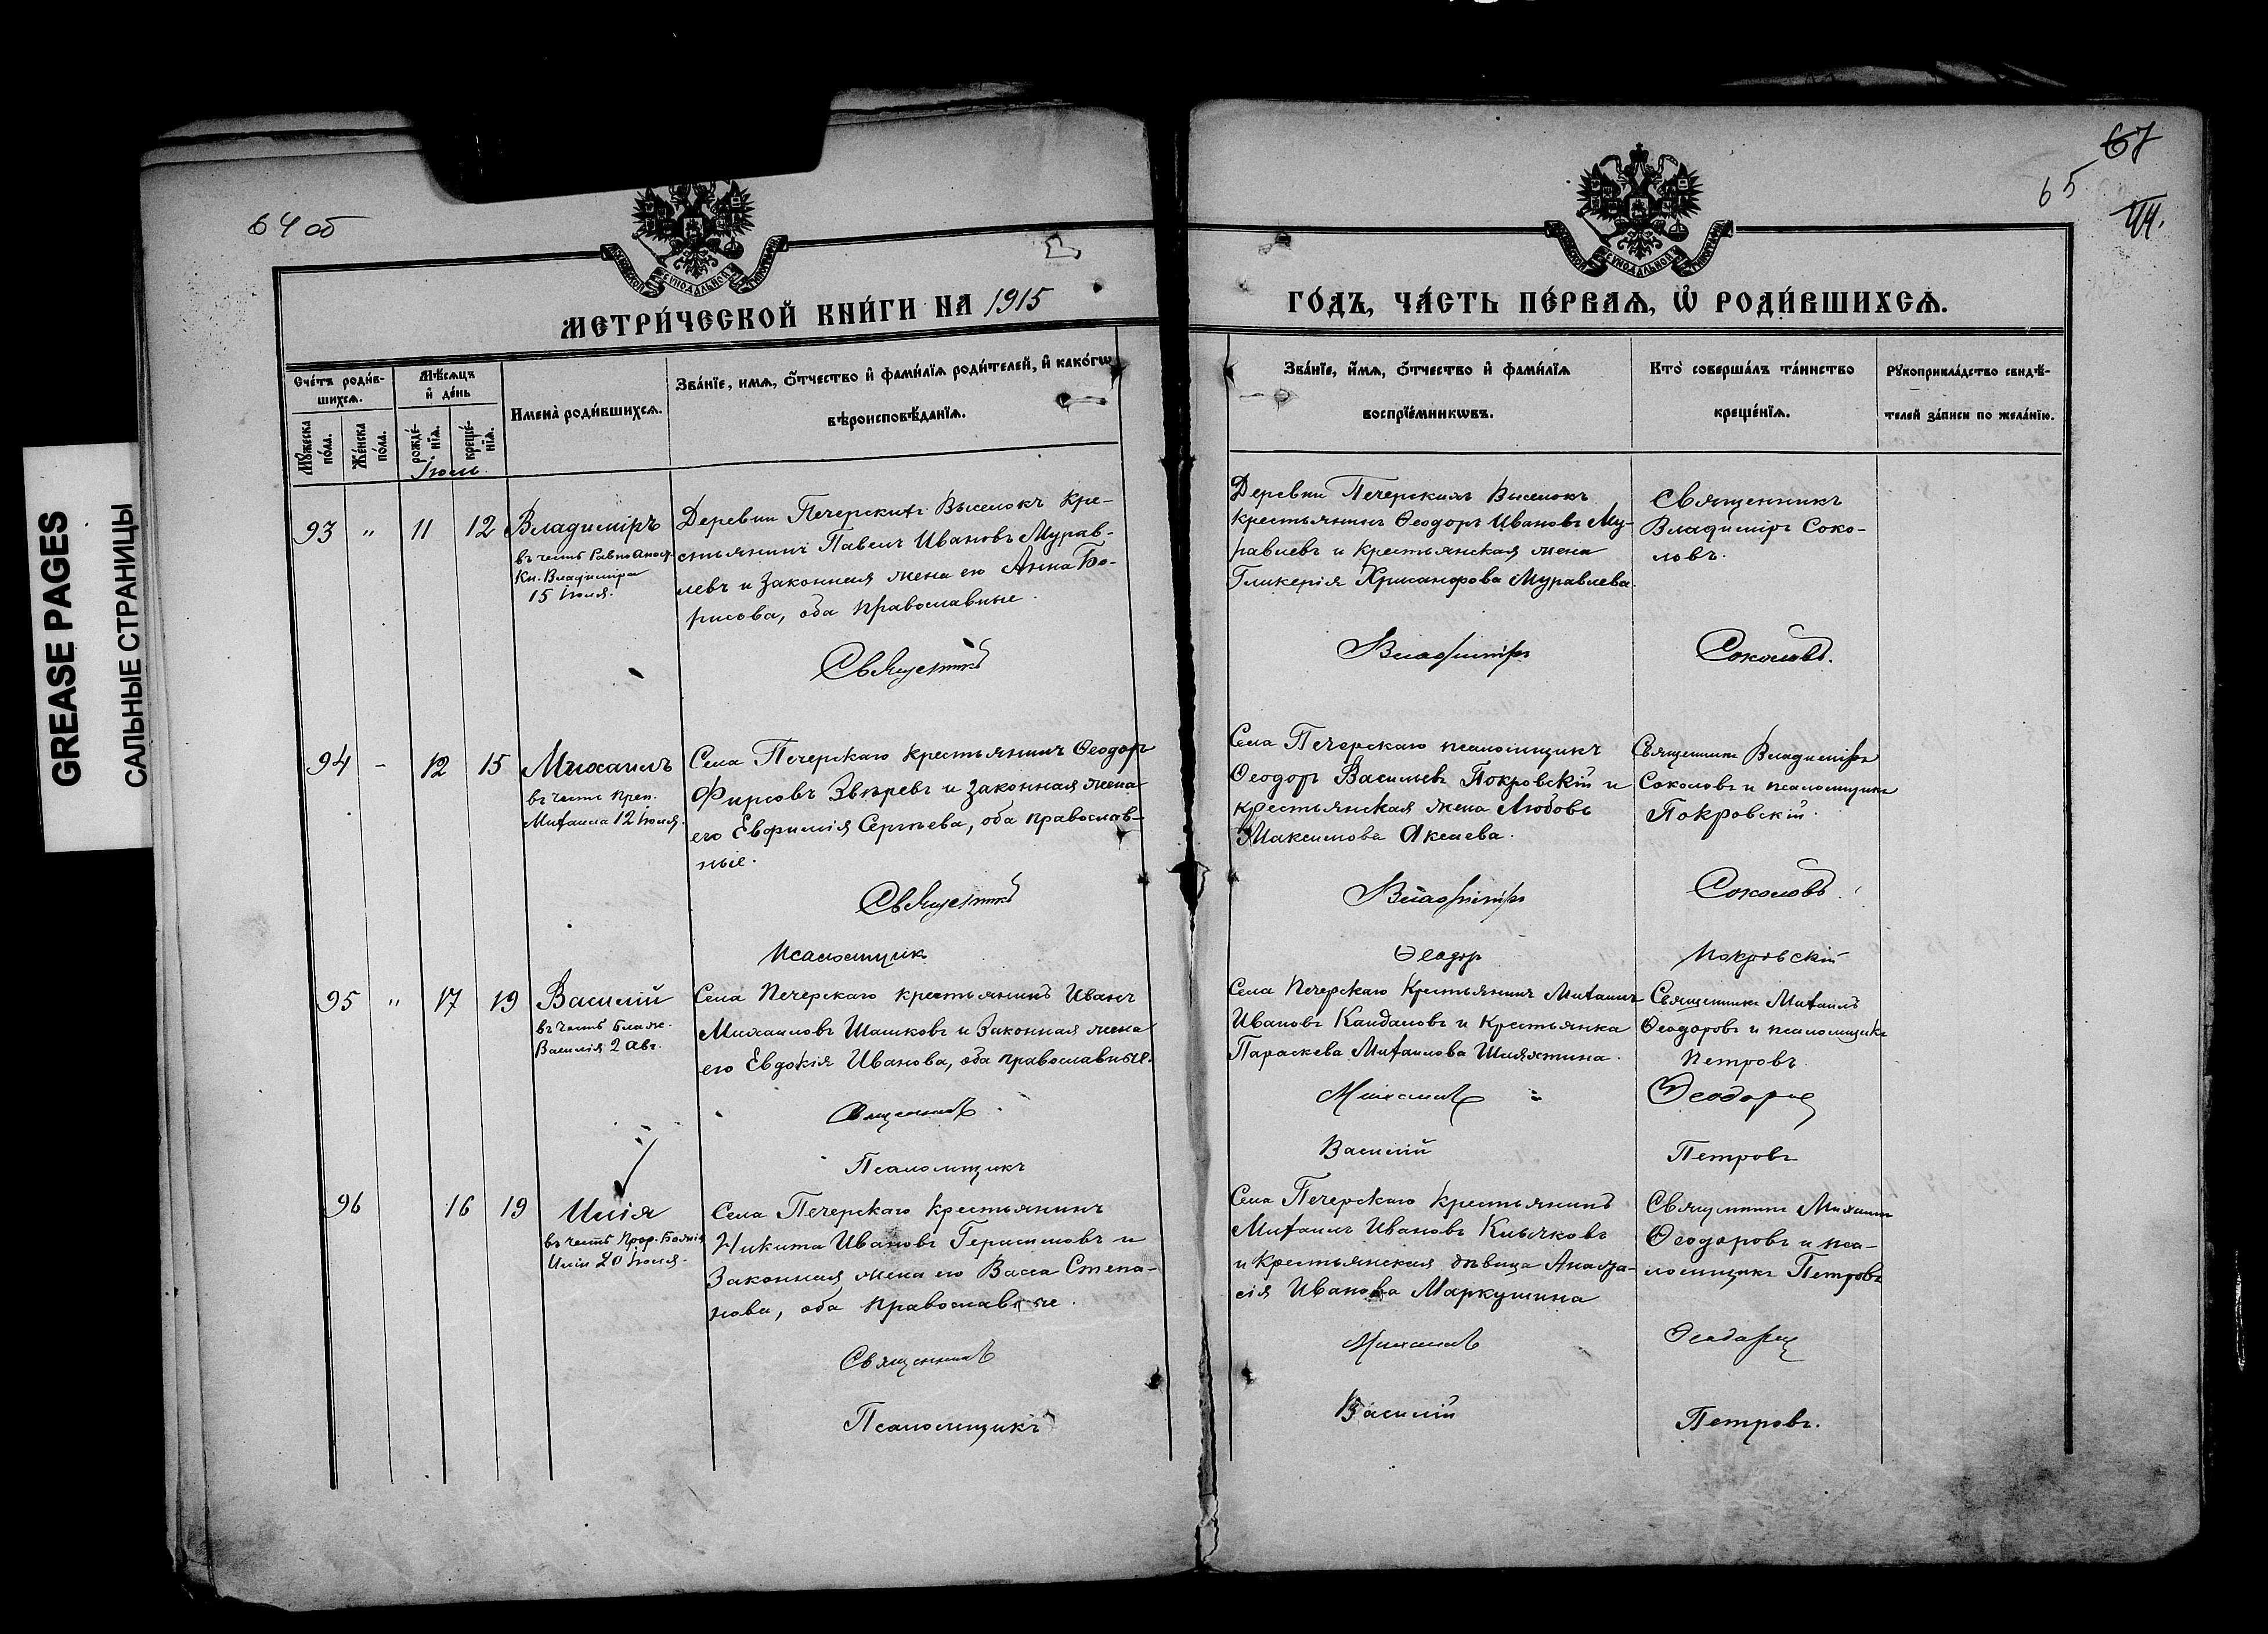 GREASE PAGES
САЛЬНЫЕ СТРАНИЦЫ
64 об
МЕТРИ́ЧЕСКОЙ КНИ́ГИ НА 1915
Сче́тъ роди́в-
шихсѧ.
Мѣ́сѧцъ
и҆ де́нь
Имена̀ роди́вшихсѧ.
Зва́нїе, имѧ, ѻ҆́тчество и҆ фами́лїѧ роди́телей, и҆ како́гѡ
вѣроисповѣ́данїѧ.
Мꙋ́жеска
по́ла.
Же́нска
по́ла.
рожде́-
нїѧ.
креще́-
нїѧ.
Іюль.
93 " 11 12 Владиміръ
въ честь Равноапост.
Кн. Владиміра
15 Іюля.
Деревни Печерскихъ Выселокъ кре-
стьянинъ Павелъ Ивановъ Мурав-
левъ и законная жена его Анна Бо-
рисова, оба православные.
Священникъ
94 - 12 15 Михаилъ
въ честь преп.
Михаила 12 Іюля.
Села Печерскаго крестьянинъ Ѳеодоръ
Фирсовъ Звѣревъ и законная жена
его Евфимія Сергѣева, оба православ-
ные.
Священникъ
Псаломщик
95 " 17 19 Василій
въ честь Блаж.
Василія 2 Авг.
Села Печерскаго крестьянинъ Иванъ
Михаиловъ Шашковъ и законная жена
его Евдокія Иванова, оба православные.
Священникъ
Псаломщикъ
96 16 19 Илія
въ честь прор. Божія
Иліи 20 Іюля.
Села Печерскаго крестьянинъ
Никита Ивановъ Герасимовъ и
законная жена его Васса Степа-
нова, оба православные.
Священникъ
Псаломщикъ
67
65
ГО́ДЪ, ЧА́СТЬ ПЕ́РВАѦ, Ѽ РОДИ́ВШИХСѦ.
Зва́нїе, и҆́мѧ, ѻ҆́тчество и҆ фами́лїѧ
воспрїе́мникѡвъ.
Кто̀ соверша́лъ та́инство
креще́нїѧ.
Рꙋкоприкла́дство свидѣ́-
телей за́писи по жела́нїю.
Деревни Печерскихъ Выселокъ
крестьянинъ Ѳеодоръ Ивановъ Му-
равлевъ и крестьянская жена
Гликерія Хрисанфова Муравлева.
Священникъ
Владиміръ Соко-
ловъ.
Владиміръ Соколовъ.
Села Печерскаго псаломщикъ
Ѳеодоръ Васильевъ Покровскій и
крестьянская жена Любовь
Максимова Аксиева.
Священникъ Владиміръ
Соколовъ и псаломщикъ
Покровскій.
Владиміръ Соколовъ.
Ѳеодор Покровскій
Села Печерскаго крестьянинъ Михаилъ
Ивановъ Кандаловъ и крестьянка
Параскева Михаилова Шляхтина.
Священникъ Михаилъ
Ѳеодоровъ и псаломщикъ
Петровъ.
Михаилъ Ѳеодоровъ
Василій Петровъ
Села Печерскаго крестьянинъ
Михаилъ Ивановъ Клычковъ
и крестьянская дѣвица Анаста-
сія Иванова Маркушина
Священникъ Михаилъ
Ѳеодоровъ и пса-
ломщикъ Петровъ
Михаилъ Ѳеодоровъ
Василій Петровъ.